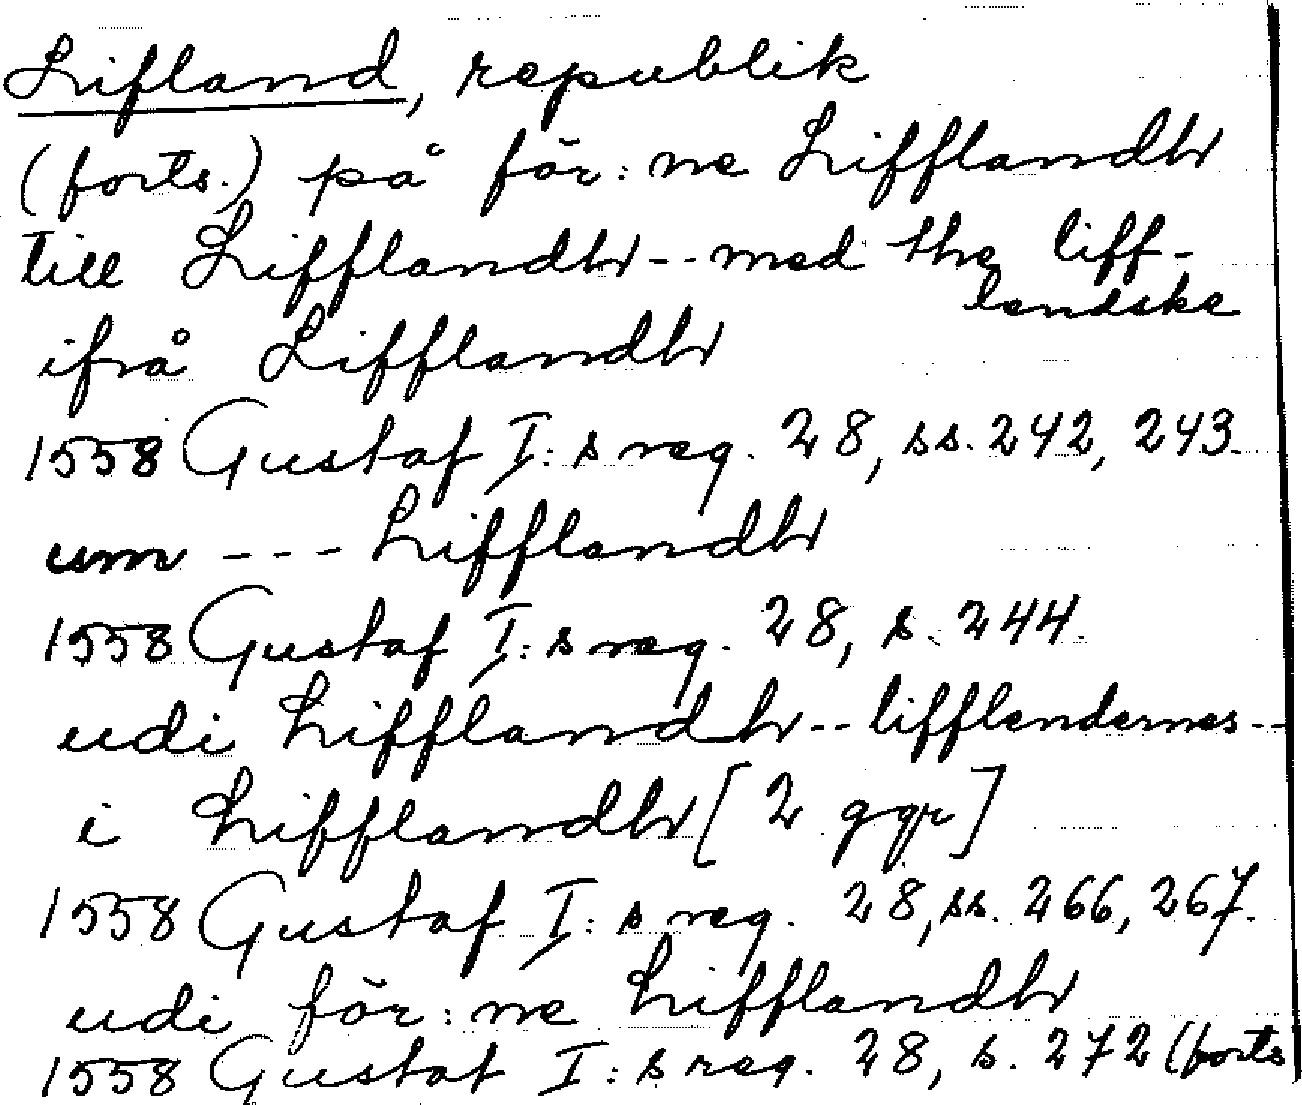 Lifland, republik
(forts.) på för:ne Lifflandtt
till Lifflandtt -- med the liff-
lendske
ifrå Lifflandtt
1558 Gustaf I:s reg. 28, ss. 242, 243.
um --- Lifflandtt
1558 Gustaf I:s reg. 28, s. 244.
udi Lifflandtt -- lifflendernes --
i Lifflandtt [2 ggr]
1558 Gustaf I:s reg. 28, ss. 266, 267.
udi för:ne Lifflandtt
1558 Gustaf I:s reg. 28, s. 272 (forts